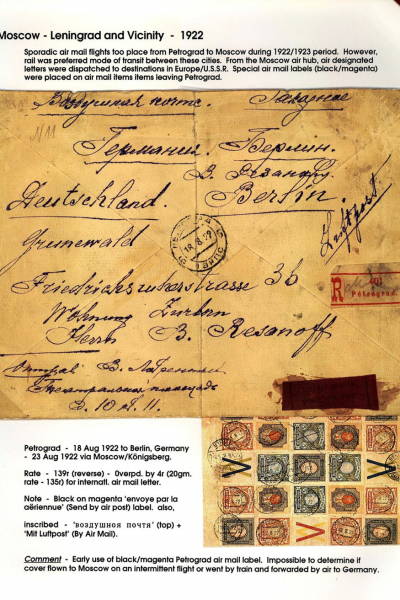 Moscow - Leningrad and Vicinity - 1922
Sporadic air mail flights too place from Petrograd to Moscow during 1922/1923 period. However,
rail was preferred mode of transit between these cities. From the Moscow air hub, air designated
letters were dispatched to destinations in Europe/U.S.S.R. Special air mail labels (black/magenta)
were placed on air mail items items leaving Petrograd.
Воздушная почта. Заказное
N11
Германия. Берлин.
В. Рѣзанову.
Deutschland. Berlin.
Luftpost
Grunewald
18 8 22
Friedrichsruherstrasse 3b
R 401
Petrograd.
Wohnung Zurbon
Herrn B. Resanoff
В.
Театральная площадь
д. 10 кв. 11.
Petrograd - 18 Aug 1922 to Berlin, Germany
- 23 Aug 1922 via Moscow/Königsberg.
Rate - 139r (reverse) - 0verpd. by 4r (20gm.
rate - 135r) for internatl. air mail letter.
Note - Black on magenta 'envoye par la
aëriennue' (Send by air post) label. also,
inscribed - 'воздушноя почтя' (top) +
'Mit Luftpost' (By Air Mail).
Comment - Early use of black/magenta Petrograd air mail label. Impossible to determine if
cover flown to Moscow on an intermittent flight or went by train and forwarded by air to Germany.